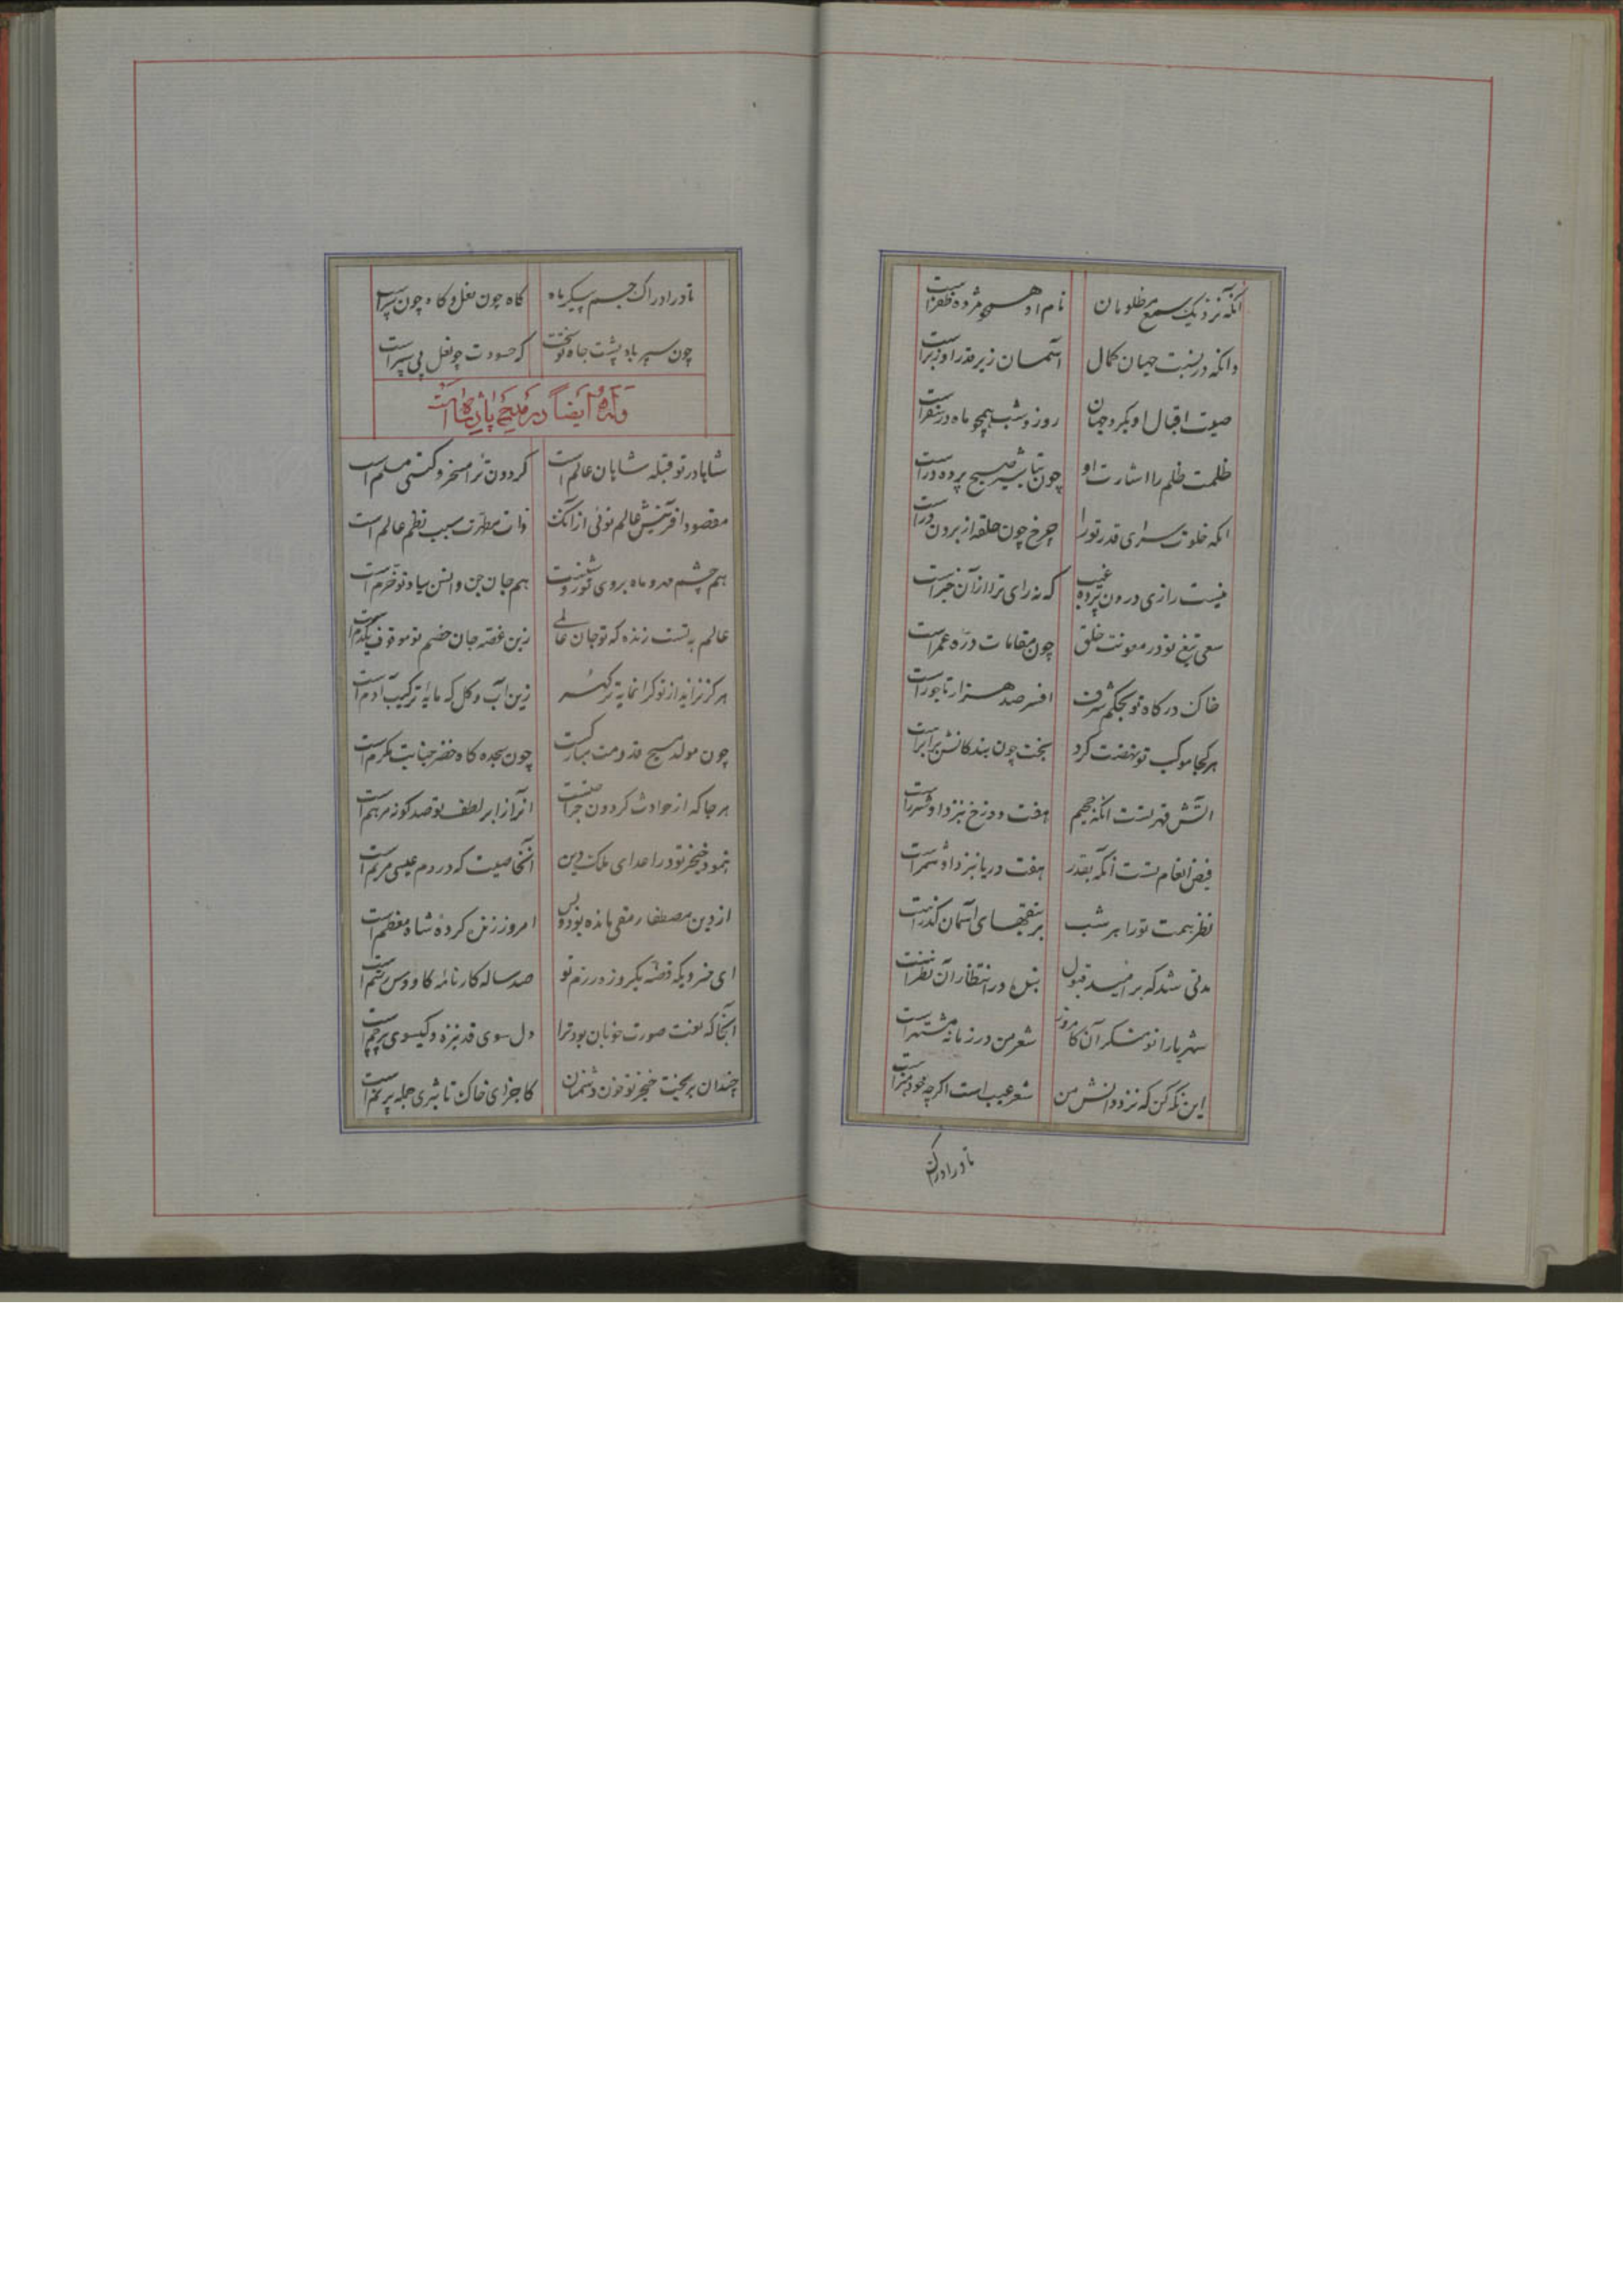 آنکه نزدیک سمع مظلومان نام او همچو مژده ظفر است
وانکه در نسبت جهان کمال آسمان زیر قدر او زبر است
صیت اقبال او بکرد جهان روز و شب همچو ماه در سفر است
ظلمت ظلم را اشارت او چون تباشیر صبح پرده در است
انکه خلوت سرای قدر تو را چرخ چون حلقه از برون در است
نیست رازی درون پرده غیب که نه رای ترا از آن خبر است
سعی تیغ تو در معونت خلق چون مقامات دره عمر است
خاک درکاه تو بحکم شرف افسر صد هزار تاجور است
هر کجا موکب تو نهضت کرد بخت چون بندکانش بر اثر است
آتش قهر تست آنکه جحیم هفت دوزخ بنزد او شرر است
فیض انعام تست آنکه بقدر هفت دریا بنزد او شمر است
نظر همت تو را هر شب بر سقفهای آسمان کذر است
مدتی شد که بر امید قبول بنده در انتظار آن نظر است
شهریارا تو منکر آن کامروز شعر من در زمانه مشتهر است
این نکه کن که نزد دانش من شعر عیب است اکرچه خود هنر است
تا در ادراک
تا در ادراک جسم پیکر ماه کاه چون نعل و کاه چون سپر است
چون سپر باد پشت جاه تو سخت که حسودت چو نعل پی سپر است
وله ایضا در مدح پادشاه است
شاها در تو قبله شاهان عالم است کردون ترا مسخر و کیتی مسلم است
مقصود آفرینش عالم توئی از آنک ذات مطهرت سبب نظم عالم است
هم چشم مهر و ماه بروی تو روشنست هم جان جن و انس بیاد تو خرم است
عالم به تست زنده که تو جان عالمی زین غصه جان خصم تو موقوف یکدم است
هرکز نزاید از تو کرانمایه تر کهر زین آب و کل که مایه ترکیب آدم است
چون مولد مسیح قدومت مبارکست چون سجده کاه خضر جنابت مکرم است
هر جا که از حوادث کردون جراحتست آنرا ز ابر لطف تو صد کونه مرهم است
بنمود خنجر تو در اعدای ملک و دین آن خاصیت که در دم عیسی مریم است
از دین مصطفا رمقی مانده بود و بس امروز زنده کرده شاه معظم است
ای خسرویکه قصه یکروزه رزم تو صد ساله کارنامه کاوس و رستم است
آنجا که نعت صورت خوبان بود ترا دل سوی قد نیزه و کیسوی پرچم است
چندان بریخت خنجر تو خون دشمنان کاجزای خاک تا بثری جمله پر نم است